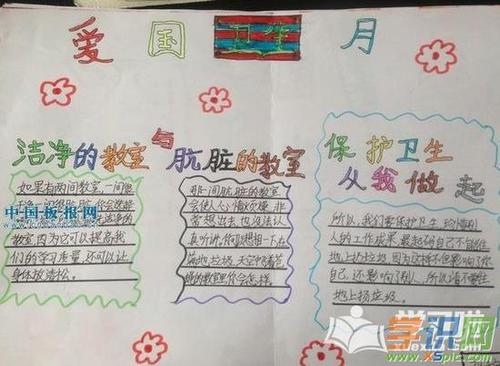 爱国卫生月
洁净的教室与肮脏的教室
保护卫生
从我做起
如果有两间教室,一间很
教室因为它可以提高我
们的学习质量,还可以让
身体放清松。
那一间肮脏的教室
会使人心情烦燥,非
常想出去也没法认
真听讲,你可想想一下在
满地垃圾,天空中
的教室里你会怎样
所以,我们要保护卫生,珍惜别
人的工作成果,最起码自己不能往
地上扔垃圾,因为这样不但影响了你
自己,还影响了别人,所以请不要往
地上扔垃圾。
中国板报网
学识网
www.xspic.com